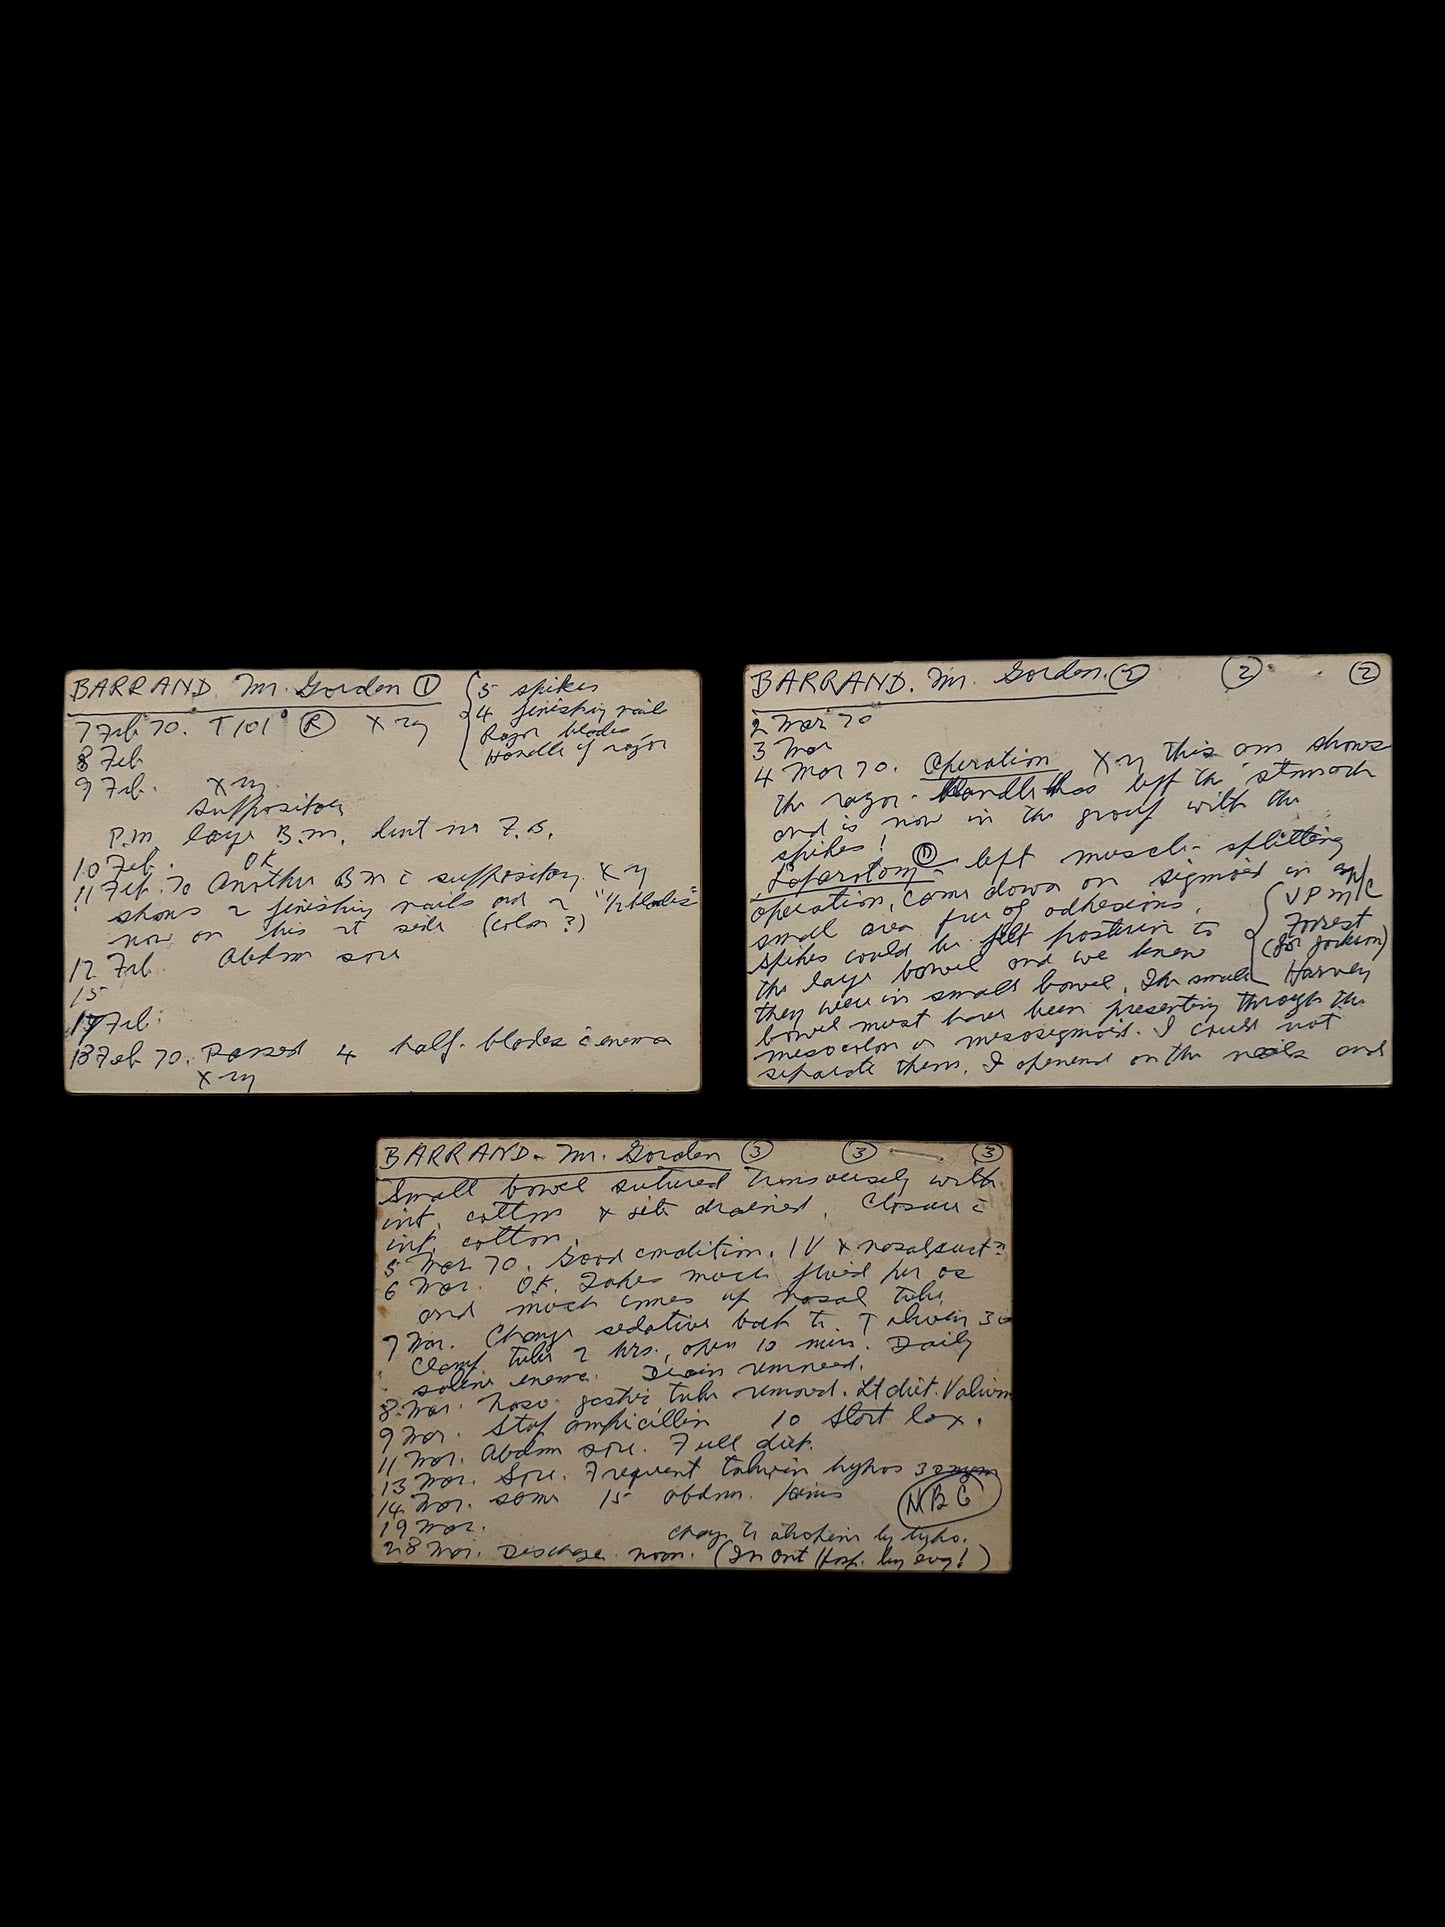 BARRAND. Mr. Gorden ①
{ 5 spikes
4 finishing nails
Razor blades
Handle of razor
7 Feb 70. T 101° Ⓡ X ray
8 Feb
9 Feb. X ray.
Suppository
P.M. large B.M. but no F.B.
10 Feb. OK
11 Feb. 70 Another BM c̄ suppository. X ray
shows 2 finishing nails and 2 "½ blades"
now on his rt side (colon?)
12 Feb. Abdm sore
15
17 Feb.
18 Feb 70. Passed 4 half-blades c̄ enema
X ray
BARRAND. Mr. Gorden. ② ② ②
2 Mar 70
3 Mar
4 Mar 70. Operation X ray this am shows
the razor-handle has left the stomach
and is now in the group with the
spikes!
Laparotomy - left muscle-splitting
operation, came down on sigmoid in
small area free of adhesions.
Spikes could be felt posterior to
the large bowel and we knew
they were in small bowel. The small
bowel must have been presenting through the
mesocolon or mesosigmoid. I could not
separate them. I opened on the nails and
{ V P M/C
Forrest
(for Jackson)
Harvey
BARRAND - Mr. Gorden ③ ③ ③
Small bowel sutured transversely with
int. cotton & site drained. Closure c̄
int. cotton.
5 Mar 70. Good condition. IV & nasal suct.
6 Mar. OK. Takes much fluid per os
and much comes up nasal tube
7 Mar. Change sedative back to Talwin 30
Clamp tube 2 hrs., open 10 mins. Daily
saline enema. Drain removed.
8 Mar. Naso-gastric tube removed. Lt diet. Valium
9 Mar. Stop ampicillin 10 Start lax.
11 Mar. Abdm sore. Full diet.
13 Mar. Sore. Frequent talwin hypos
14 Mar. some 15 abdm. pains
NBG
19 Mar. change to by hypo.
28 Mar. Discharge noon. (In Ont Hosp. by evg!)